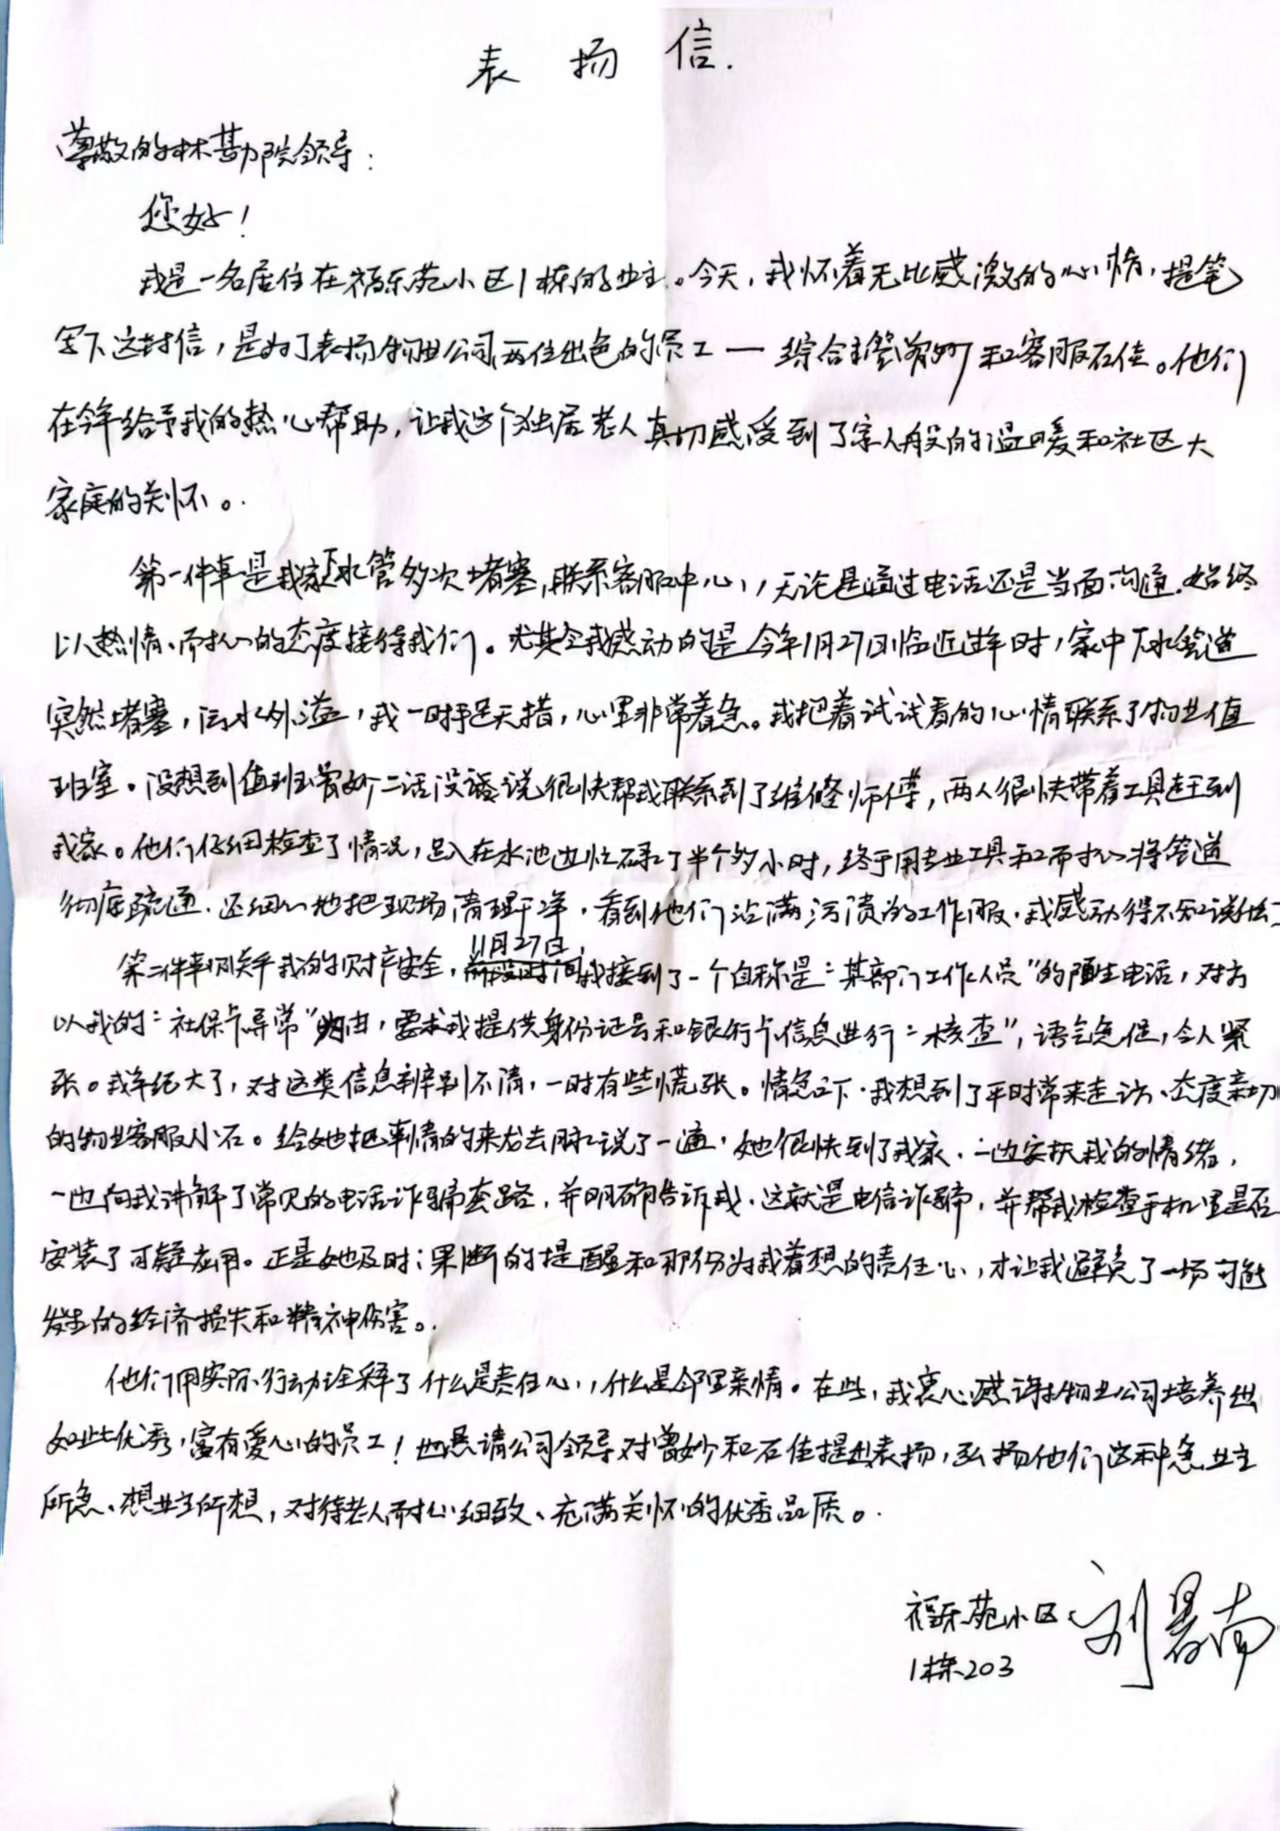 表扬信.
尊敬的林勘院领导：
您好！
我是一名居住在福乐苑小区1栋的业主。今天，我怀着无比感激的心情，提笔
写下这封信，是为了表扬物业公司两位出色的员工一综合主管曾妙和客服石佳。他们
在今年给予我的热心帮助，让我这个独居老人真切感受到了家人般的温暖和社区大
家庭的关怀。
第一件事是我家下水管多次堵塞，联系客服中心，无论是通过电话还是当面沟通，始终
以热情、耐心的态度接待我们。尤其令我感动的是今年1月27日临近过年时，家中下水管道
突然堵塞，污水外溢，我一时手足无措，心里非常着急。我把着试试看的心情联系了物业值
班室。没想到值班曾妙二话没说很快帮我联系到了维修师傅，两人很快带着工具赶到
我家。他们仔细检查了情况，足足在水池边忙碌了半个多小时，终于用专业工具和耐心将管道
彻底疏通，还细心地把现场清理干净，看到他们沾满污渍的工作服，我感动得不知说什么
第二件事则关乎我的财产安全，11月27日，我接到了一个自称是“某部门工作人员”的陌生电话，对方
以我的“社保卡异常”为由，要求我提供身份证号和银行卡信息进行“核查”，语气急促，令人紧
张。我年纪大了，对这类信息辨别不清，一时有些慌张。情急之下，我想到了平时常来走访、态度亲切
的物业客服小石。给她把事情的来龙去脉说了一遍，她很快到了我家，一边安抚我的情绪，
一边向我讲解了常见的电话诈骗套路，并明确告诉我，这就是电信诈骗，并帮我检查手机里是否
安装了可疑应用。正是她及时；果断的提醒和那份为我着想的责任心，才让我避免了一场可能
发生的经济损失和精神伤害。
他们用实际行动诠释了什么是责任心，什么是邻里亲情。在此，我衷心感谢物业公司培养出
如此优秀，富有爱心的员工！也恳请公司领导对曾妙和石佳提出表扬，弘扬他们这种急业主
所急、想业主所想，对待老人耐心细致、充满关怀的优秀品质。
福乐苑小区
1栋203
刘暑南